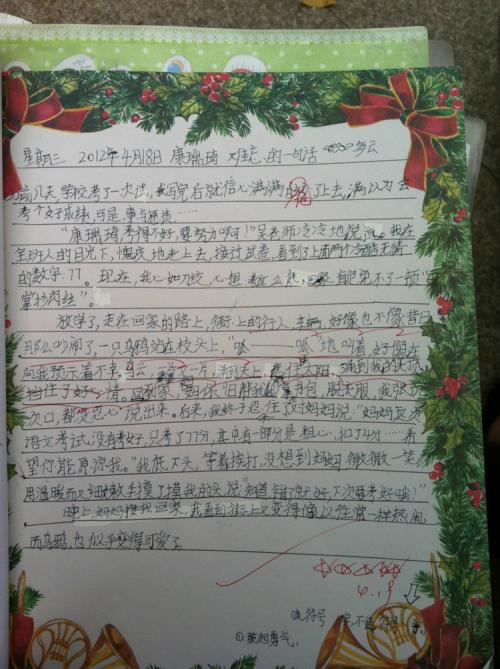 星期三 2012年4月18日 康瑞琦 难忘的一句话 多云
前几天,学校考了一次试,我写完后就信心满满的交了上去,满以为会
考个好成绩,可是,事与愿违……
“康瑞琦,考得不好,要努力啊!”吴老师冷冷地说道。我在
全班人的目光下,愧疚地走上去,接过试卷,看到了上面两个冷酷无情
的数字:77。现在,我心如刀绞,心想:考这么低,回家肯定免不了一顿“
掌抄肉丝”。
放学了,走在回家的路上,街上的行人、车辆,好像也不像昔日
那么吵闹了,一只乌鸦站在枝头上,“呱——呱”地叫着,好像在
向我预示着不幸。白云一片一片,涌到天上,遮住太阳,涌到我的头顶
挡住了好心情。回到家,妈依旧帮我书包,脱衣服,我张
次口,都没忍心说出来。后来,我终于忍住对妈妈说:“妈妈
语文考试,没有考好,只考了77分,其中有一部分是粗心,扣了4分……希
望你能原谅我。”我低下头,等着挨打,没想到妈妈微微一笑
用温暖而又细嫩手摸了摸我的头,说“知道错了就好,下次要考好哦!”
晚上,妈妈接我回家,我看到街上又变得像以往常一样热闹,
而乌鸦,也似乎变得可爱了。
4.19
符号
①鼓起勇气